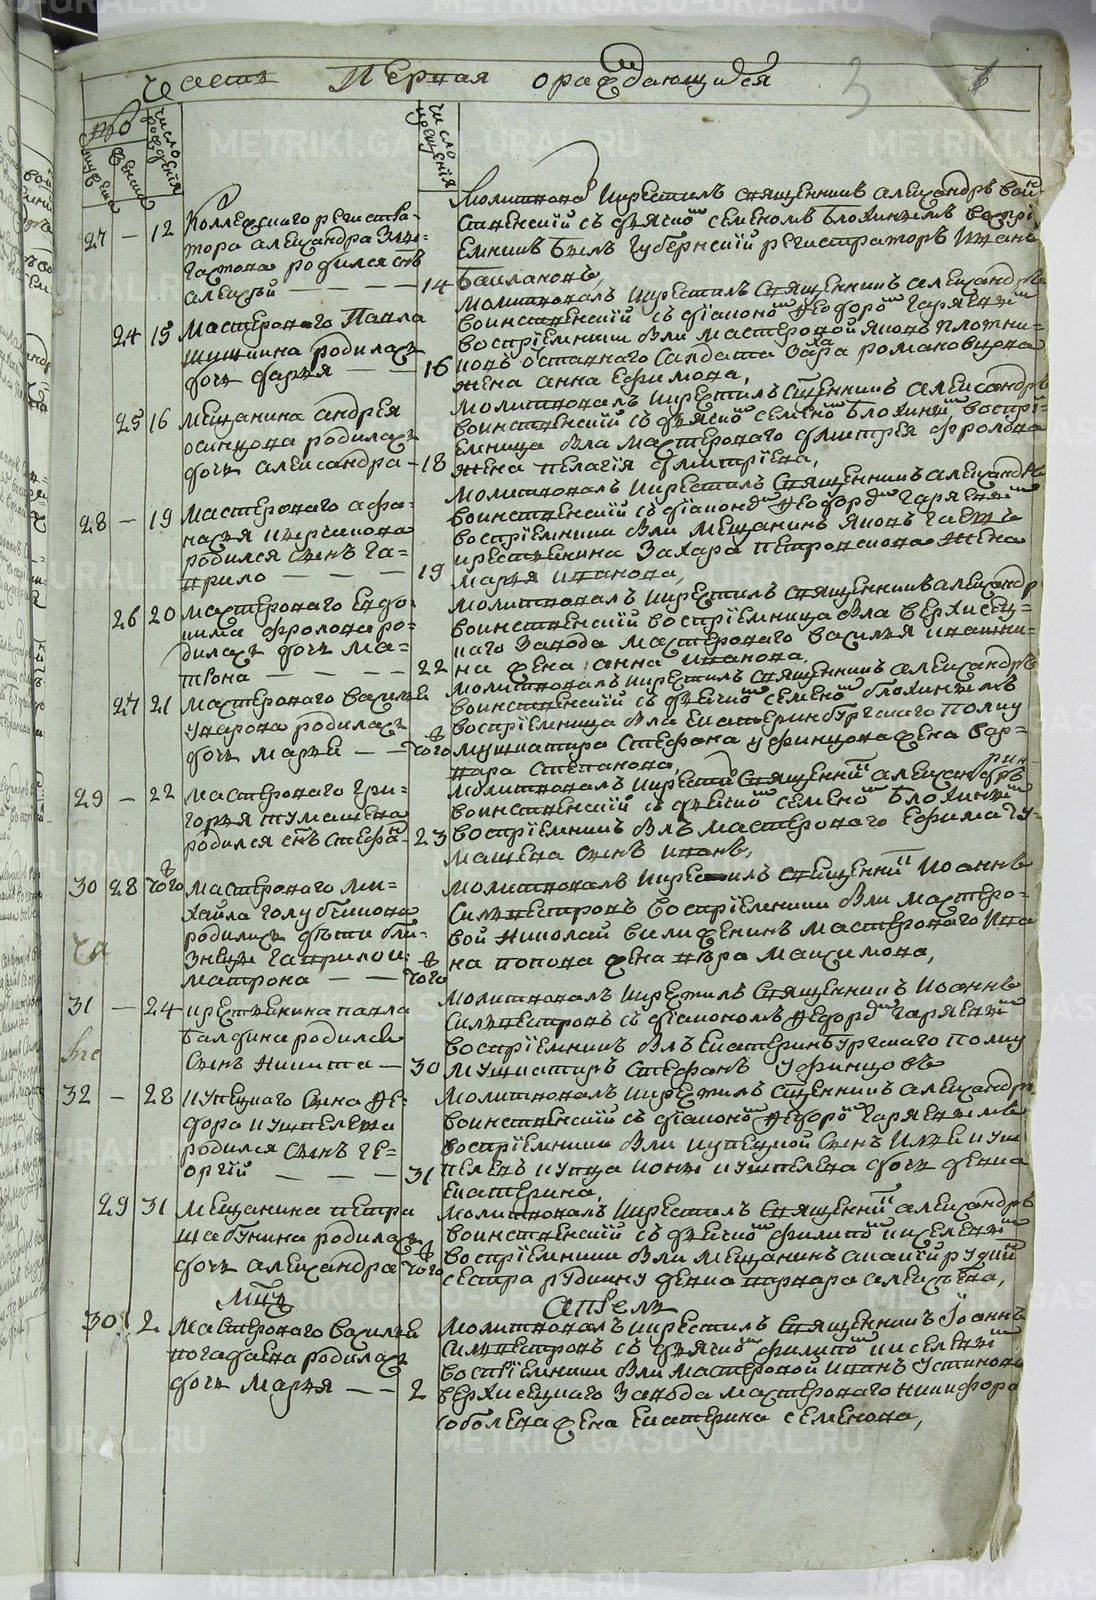 Часть Первая о раждающихся
число рождения
число крещения
27 — 12 Коллежского регистра-
тора Александра
родился снъ
Алексей — — — 14
Молитвовал и крестилъ священникъ Александръ Вои-
нственский съ дьячкомъ Семеномъ Блохинымъ воспри-
емникъ былъ губернский регистраторъ Иванъ
24 15 Мастероваго Павла
Шишкина родилась
дочь Дарья — — 16
Молитвовалъ и крестилъ священникъ Александръ
Воинственский съ диакономъ Феодоромъ Гаряевымъ
восприемники были мастеровой Яковъ Плотни-
ковъ отставнаго солдата Захара Романовы
жена Анна Ефимова,
25 16 Мещанина Андрея
Осинцова родилась
дочь Александра — 18
Молитвовалъ и крестилъ священникъ Александръ
Воинственский съ дьячкомъ Семеномъ Блохинымъ воспри-
емница была мастероваго Дмитрея Фролова
жена Пелагия Дмитриева,
28 — 19 Мастероваго Афа-
насья
родился сынъ Га-
врило — — — 19
Молитвовалъ и крестилъ священникъ Александръ
Воинственский съ диакономъ Феодоромъ Гаряевымъ
восприемники были мещанинъ Яковъ
крестьянина Захара жена
Марья Иванова,
26 20 Мастероваго Евдо-
кима Фролова ро-
дилась дочь Ма-
трона — — — 22
Молитвовалъ и крестилъ священникъ Александръ
Воинственский восприемница была Верхисец-
каго завода мастероваго Василья
на жена Анна Иванова.
27 21 Мастероваго Василья
Уварова родилась
дочь Марья — — того
Молитвовалъ и крестилъ священникъ Александръ
Воинственский съ дьячкомъ Семеномъ Блохинымъ
восприемница была Екатеринбургскаго полку
мушкатира Стефана Уфинцова жена Вар-
вара Степанова,
29 — 22 Мастероваго Гри-
горья Тумашева
родился снъ Стефа- 23
Молитвовалъ и крестилъ священникъ Александръ
Воинственский съ дьячкомъ Семеномъ Блохинымъ
восприемникъ былъ мастероваго Ефима Ту-
машева сынъ Иванъ,
30 28 того Мастероваго Ми-
хайла Голубчикова
родились дети бли-
знецы Гаврило и
Матрона — — того
Молитвовалъ и крестилъ священникъ Иоаннъ
Сильвестровъ восприемники были мастеро-
вой Николай мастероваго Ива-
на Попова жена Вера Максимова,
31 — 24 крестьянина Павла
Балдина родился
сынъ Никита — 30
Молитвовалъ и крестилъ священникъ Иоаннъ
Сильвестровъ съ диакономъ Феодоромъ Гаряевымъ
восприемникъ былъ Екатеринбургскаго полку
мушкатиръ Стефанъ Уфинцовъ
32 — 28 Купецкаго сына Фе-
дора Кушпелева
родился сынъ Ге-
оргий — — — 31
Молитвовалъ и крестилъ священникъ Александръ
Воинственский съ диакономъ Феодоромъ Гаряевымъ
восприемники были купецкой сынъ Куш-
пелевъ купца Ионы Кушпелева дочь девка
Екатерина,
29 31 Мещанина Петра
Шабунина родилась
дочь Александра того
Молитвовалъ и крестилъ священникъ Александръ
Воинственский съ дьячкомъ Филипомъ Киселевымъ
восприемники были мещанинъ
сестра девка Варвара Алексеева,
Мцъ Апрель
30 2 Мастероваго Василья
Погадаева родилась
дочь Марья — — 2
Молитвовалъ и крестилъ священникъ Иоаннъ
Сильвестровъ съ дьячкомъ Филипомъ Киселевымъ
восприемники были мастеровой Иванъ Устиновъ
Верхисецкаго завода мастероваго Никифора
Соболева жена Екатерина Семенова,
METRIKI.GASO-URAL.RU